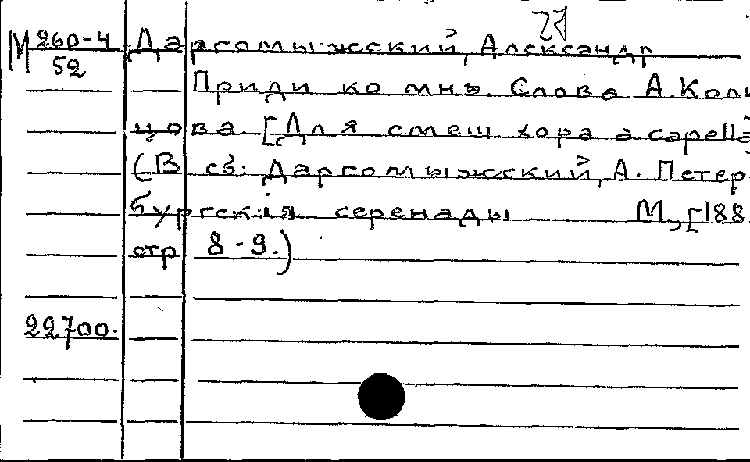 27
М 260-4 Даргомыжский, Александр
52
Приди ко мнѣ. Слова А. Коль
цова. [Для смеш. хора a capella
(В сб.: Даргомыжский, А. Петер
бургскiя серенады М., [188
стр 8-9.)
22700.